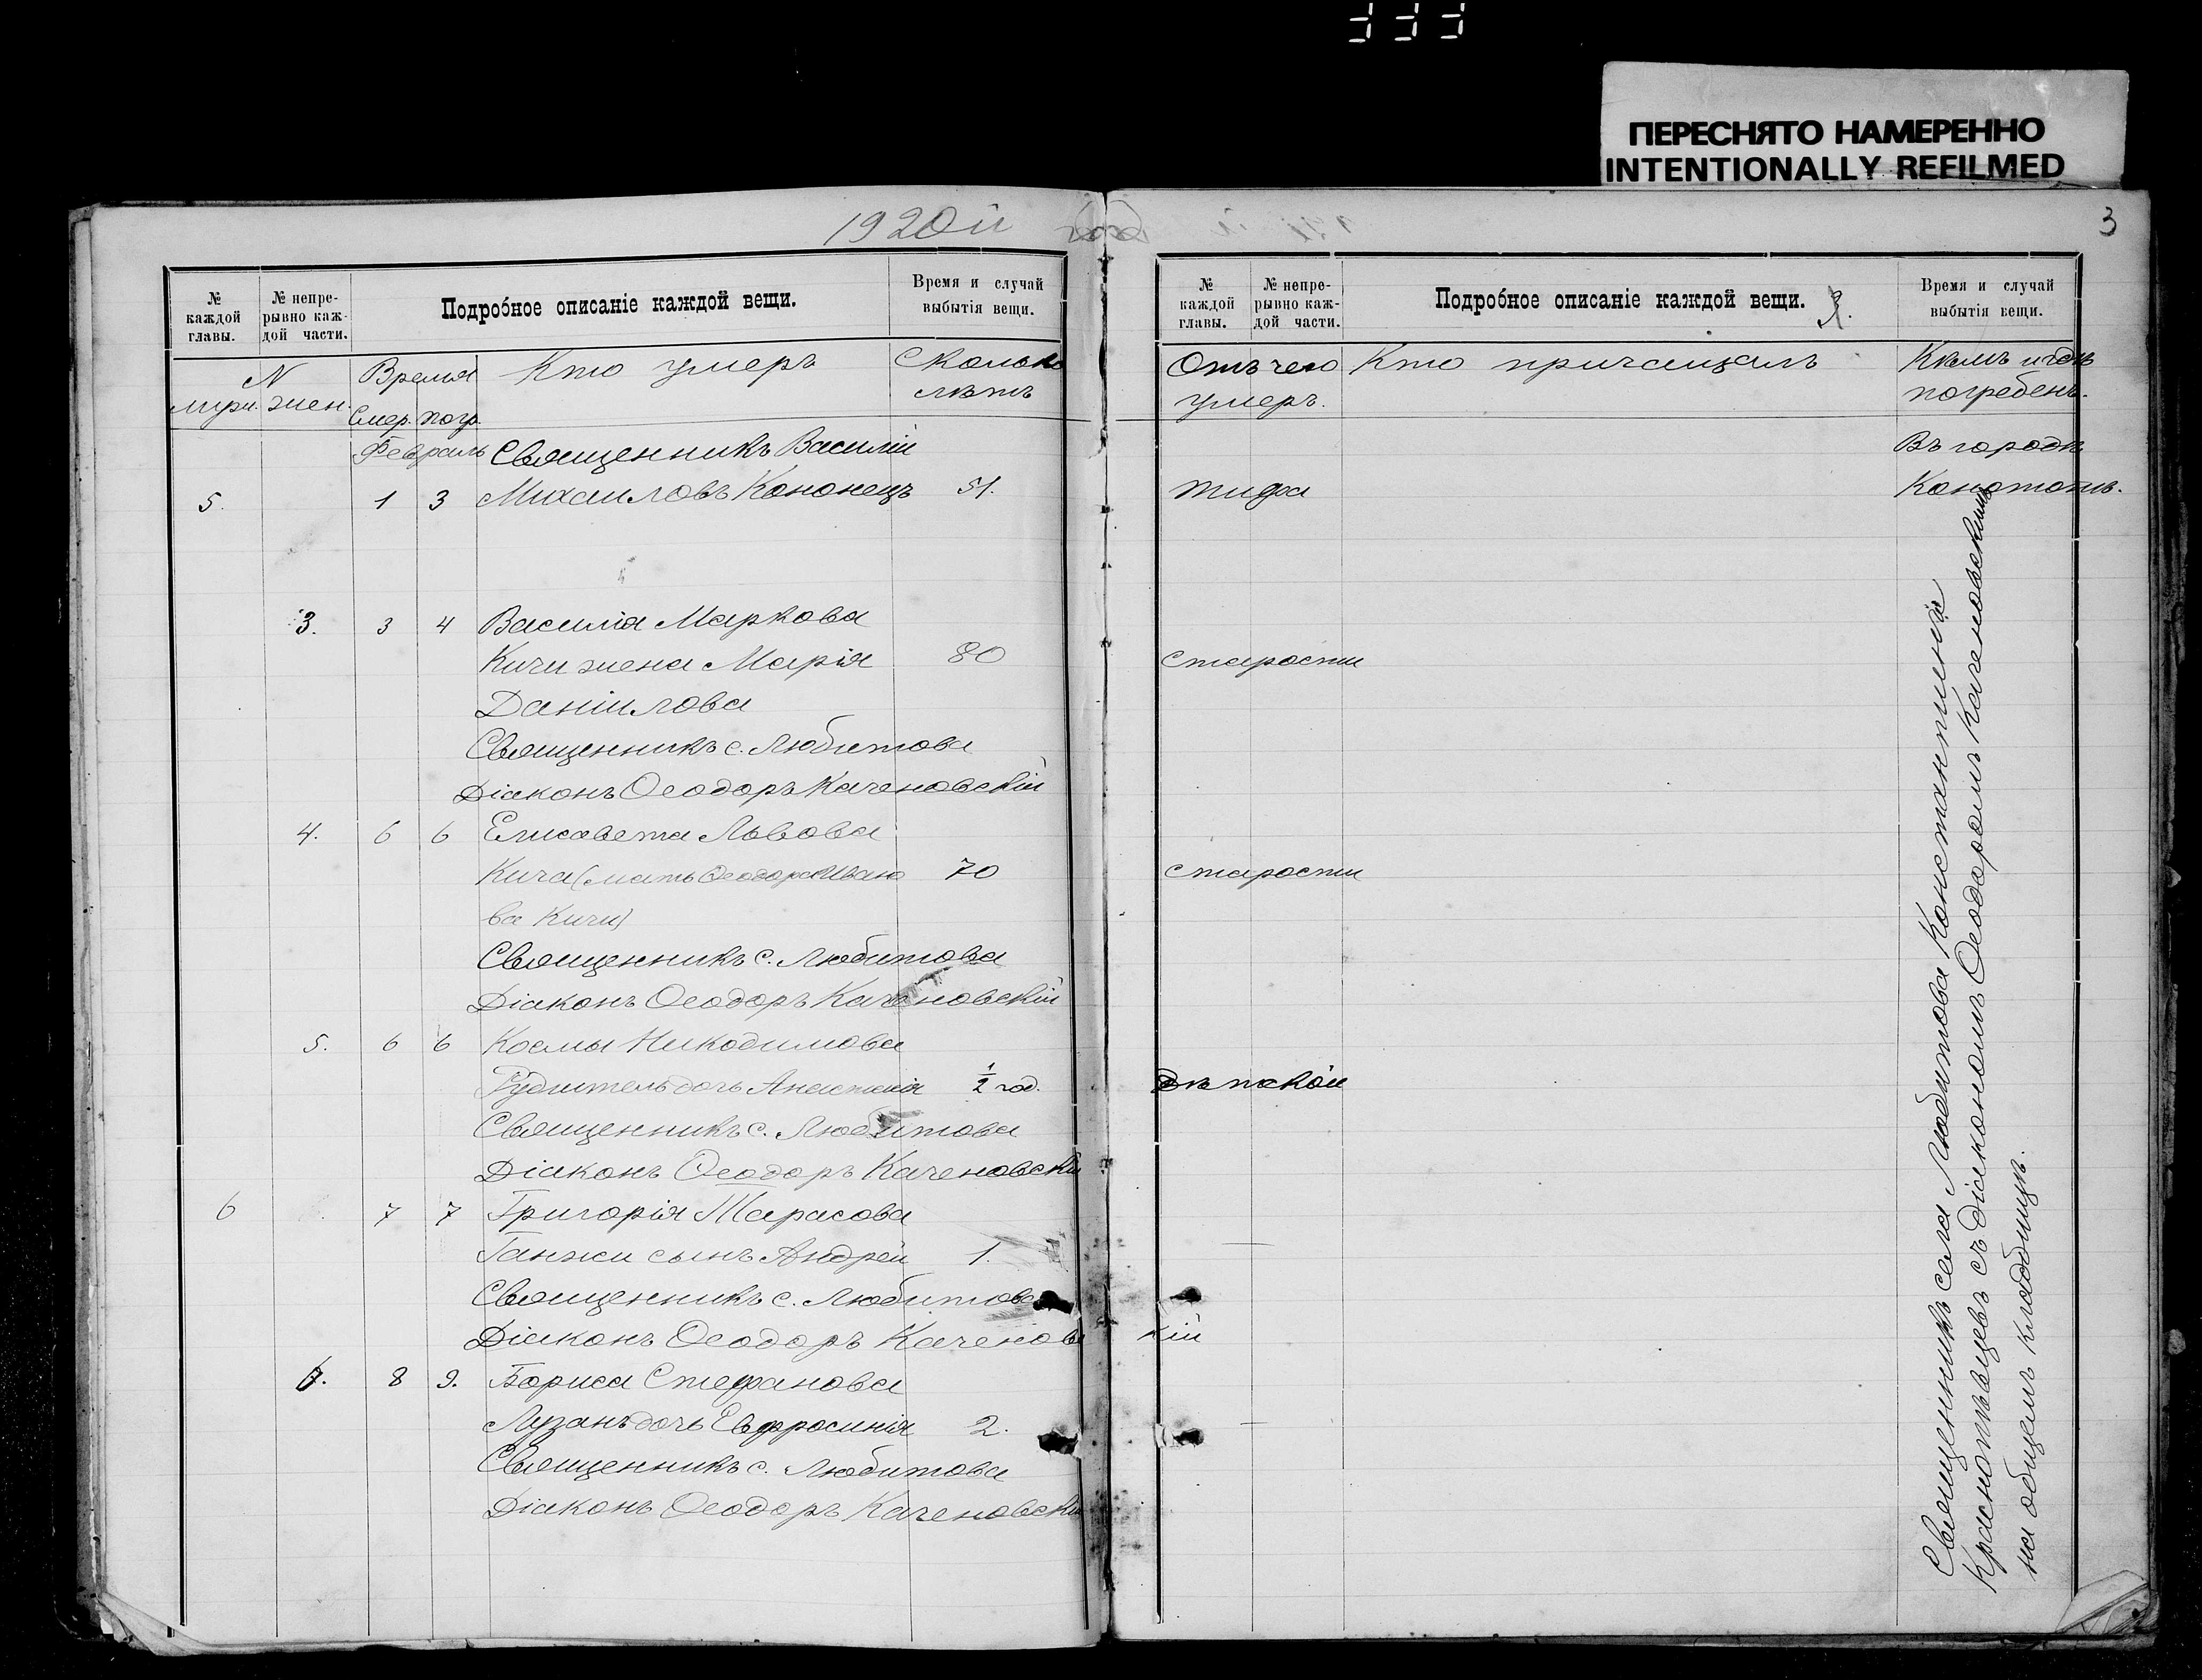 ПЕРЕСНЯТО НАМЕРЕННО
INTENTIONALLY REFILMED
1920й
3
№ каждой главы.
№ непре-рывно каж-дой части.
Подробное описаніе каждой вещи.
Время и случай выбытія вещи.
N
муж. жен.
Время
Смер. погр.
Кто умеръ
Сколько
лѣтъ
Февраль Священникъ Василій
5. 1 3 Михаиловъ Кононецъ 51.
3. 3 4 Василія Маркова
Кичи жена Марія 80
Даніилова
Священникъ с. Любитова
Діаконъ Ѳеодоръ Каченовскій
4. 6 6 Елисавета Львова
Кича (мать Ѳеодора Ивано 70
ва Кичи)
Священникъ с. Любитова
Діаконъ Ѳеодоръ Каченовскій
5. 6 6 Космы Никодимова
дочь Анастасія ½ год.
Священникъ с. Любитова
Діаконъ Ѳеодоръ Каченовскій
6 7 7 Григорія Тарасова
Ганжи сынъ Андрей 1.
Священникъ с. Любитова
Діаконъ Ѳеодоръ Каченов кій
6. 8 9. Бориса Стефанова
Лузанъ дочь Евфросинія 2.
Священникъ с. Любитова
Діаконъ Ѳеодоръ Каченовскій
№ каждой главы.
№ непре-рывно каж-дой части.
Подробное описаніе каждой вещи.
Время и случай выбытія вещи.
Отъ чего
умеръ.
Кто причащалъ
Кѣмъ и гдѣ
погребенъ.
Въ городѣ
тифа
Конотопъ.
старости
старости
дѣтской
—
—
Священникъ села Любитова Константинъ
Краснопѣвцевъ съ діакономъ Ѳеодоромъ Каченовскимъ
на общемъ кладбищѣ.